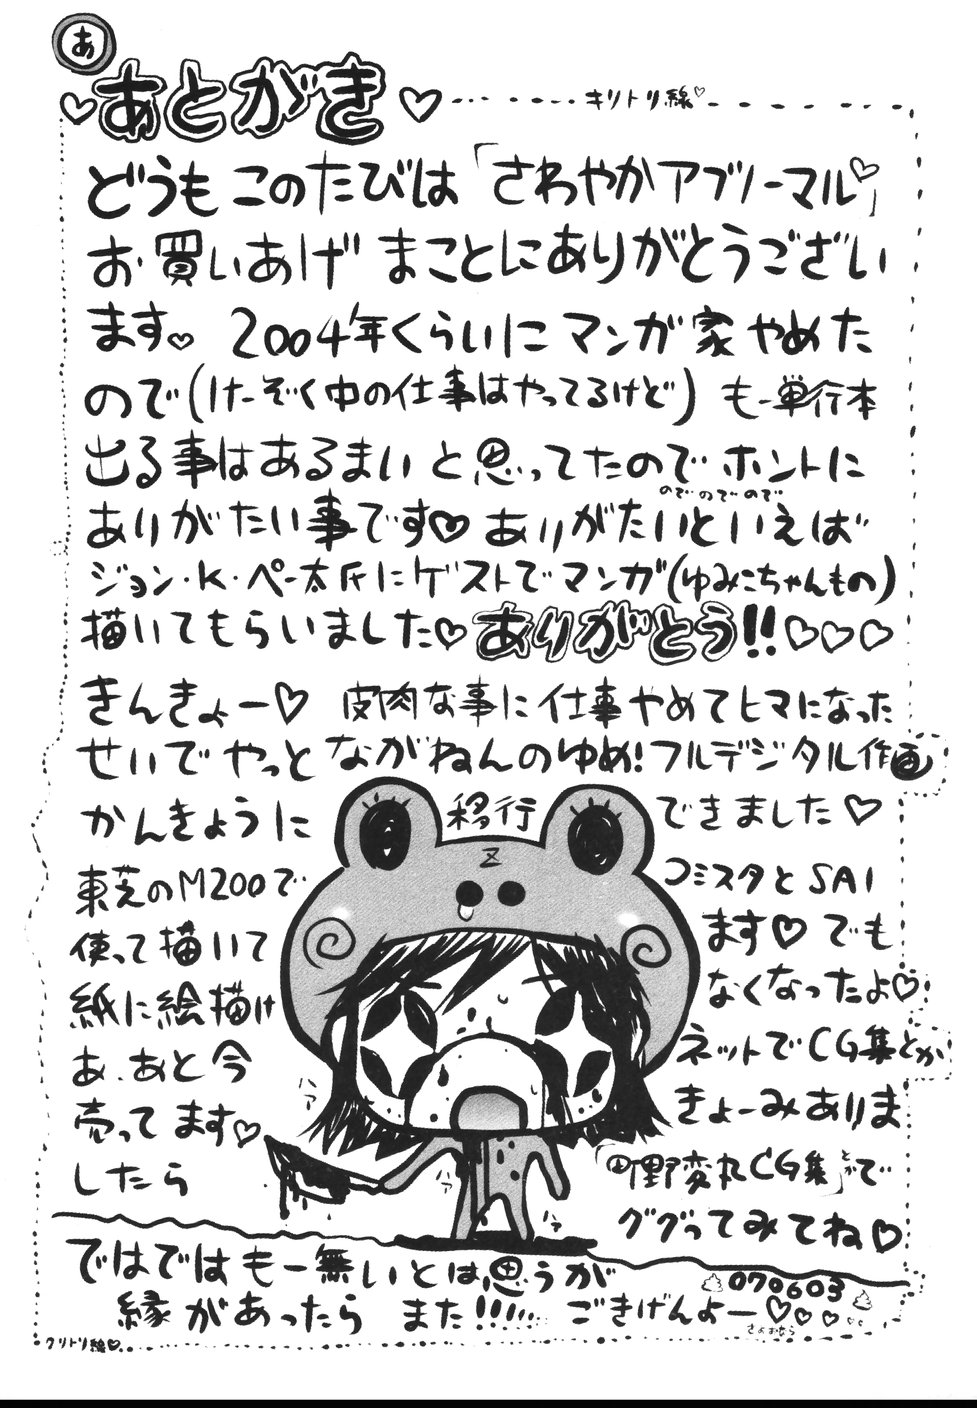 あ
♡あとがき♡
キリトリ線♡
どうも このたびは「さわやかアブノーマル♡」
お買いあげ まことにありがとうござい
ます♡ 2004年くらいに マンガ家やめた
ので(けーぞく中の仕事はやってるけど) も一単行本
出る事はあるまい と思ってたので ホントに
のでのでので
ありがたい事です♡ ありがたいといえば
ジョン・K・ペー太氏にゲストでマンガ(ゆみこちゃんもの)
描いてもらいました♡ ありがとう!!♡♡♡
きんきょー♡ 皮肉な事に仕事やめてヒマになった
せいで やっと ながねんのゆめ!フルデジタル作画
かんきょうに 移行 できました♡
東芝のM200で コミスタとSAI
使って描いて ます♡ でも
紙に絵描け なくなったよ♡
あ、あと今 ネットでCG集とか
売ってます♡ きょーみありま
したら 「町野変丸CG集」とかで
ググってみてね♡
乙
ハァ
ハァ
ハァ
ではでは も一無いとは思うが
縁があったら また!!!!! ごきげんよー♡♡♡♡
070603
さよおなら
クリトリ線♡